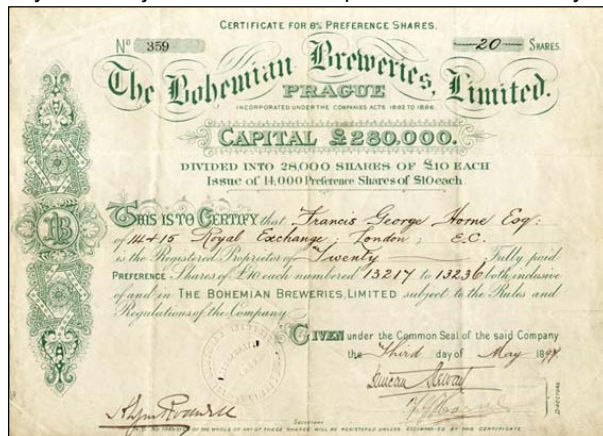 CERTIFICATE FOR 8% PREFERENCE SHARES.
No 359
20 SHARES.
The Bohemian Breweries, Limited.
PRAGUE
INCORPORATED UNDER THE COMPANIES ACTS 1862 TO 1886
CAPITAL £280.000.
DIVIDED INTO 28,000 SHARES OF £10 EACH
Issue of 14,000 Preference Shares of £10 each.
THIS IS TO CERTIFY that Francis George Horne Esq:
of 14 & 15 Royal Exchange; London; E.C.
is the Registered Proprietor of Twenty Fully paid
PREFERENCE Shares of £10 each numbered 13217 to 13236 both inclusive
of and in THE BOHEMIAN BREWERIES, LIMITED subject to the Rules and
Regulations of the Company
GIVEN under the Common Seal of the said Company
the Third day of May 189
Duncan Stewart
DIRECTORS
SECRETARY
OF THE WHOLE OR ANY OF THESE SHARES WILL BE REGISTERED UNLESS ACCOMPANIED BY THIS CERTIFICATE